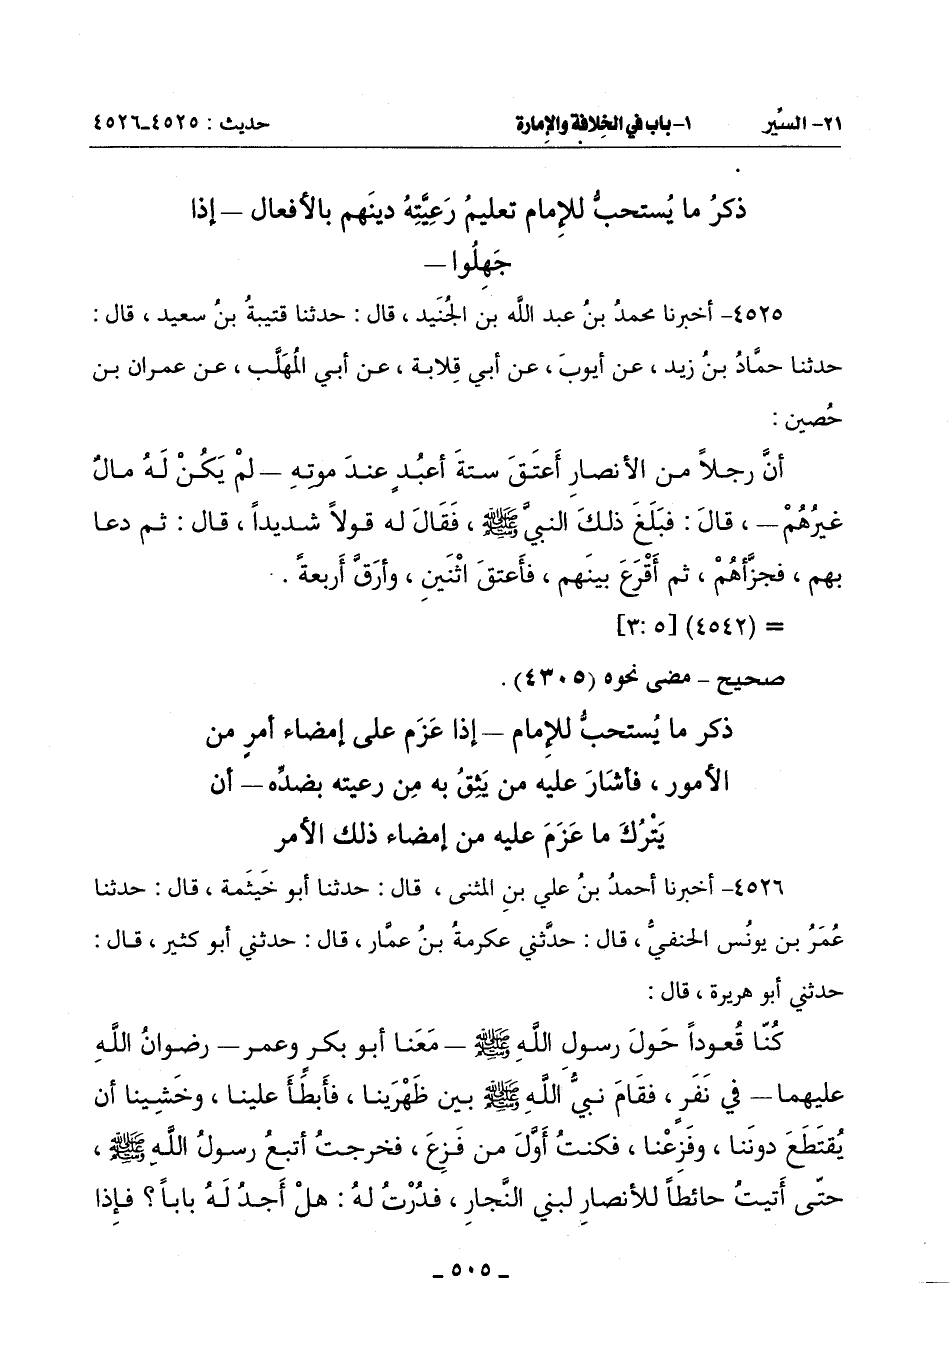 ٢١- السِّير ١- باب في الخِلافة والإمارة حديث : ٤٥٢٥-٤٥٢٦
ذكرُ ما يُستحبُّ للإمام تعليمُ رَعِيَّتِهُ دينَهم بالأفعال – إذا
جَهِلُوا –
٤٥٢٥- أخبرنا محمدُ بنُ عبد اللَّه بن الجُنَيد ، قال : حدثنا قتيبةُ بنُ سعيد ، قال :
حدثنا حمَّادُ بنُ زيد ، عن أيوبَ ، عن أبي قِلابة ، عن أبي المُهَلَّب ، عن عمران بن
حُصين :
أنَّ رجلاً من الأنصار أَعتَقَ ستةَ أعبُدٍ عندَ موتِهِ – لمْ يَكُنْ لَهُ مالٌ
غيرُهُمْ – ، قالَ : فبَلَغَ ذلكَ النبيَّ ﷺ ، فَقَالَ له قولاً شديداً ، قال : ثم دعا
بهم ، فجزَّأهُمْ ، ثم أَقْرَعَ بينَهم ، فأَعتقَ اثْنَينِ ، وأرَقَّ أَربعةً .
= (٤٥٤٢) [٥ :٣]
صحيح - مضى نحوه (٤٣٠٥) .
ذكر ما يُستحبُّ للإمام – إذا عَزَم على إمضاء أمرٍ من
الأمور ، فأشَارَ عليه من يَثِقُ به مِن رعيته بضدِّه – أن
يَتْرُكَ ما عَزَمَ عليه من إمضاء ذلك الأمر
٤٥٢٦- أخبرنا أحمدُ بنُ علي بنِ المثنى ، قال : حدثنا أبو خَيثَمة ، قال : حدثنا
عُمَرُ بن يونُس الحنفيُّ ، قال : حدَّثني عكرمةُ بنُ عمَّار ، قال : حدثني أبو كثير ، قال :
حدثني أبو هريرة ، قال :
كُنَّا قُعوداً حَولَ رسولِ اللَّهِ ﷺ – مَعَنا أبو بكرٍ وعمر – رضوانُ اللَّه
عليهما – في نَفَرٍ ، فقَامَ نبيُّ اللَّهِ ﷺ بينَ ظَهْرَينا ، فأَبطَأَ علينا ، وخَشِينا أن
يُقتَطَعَ دونَنا ، وفَزِعْنا ، فكنتُ أوَّلَ من فَزِعَ ، فخرجتُ أتبعُ رسولُ اللَّهِ ﷺ ،
حتَّى أتيتُ حائطاً للأنصارِ لبني النَّجارِ ، فدُرْتُ لهُ : هلْ أجدُ لَهُ باباً ؟ فإذا
- ٥٠٥ -